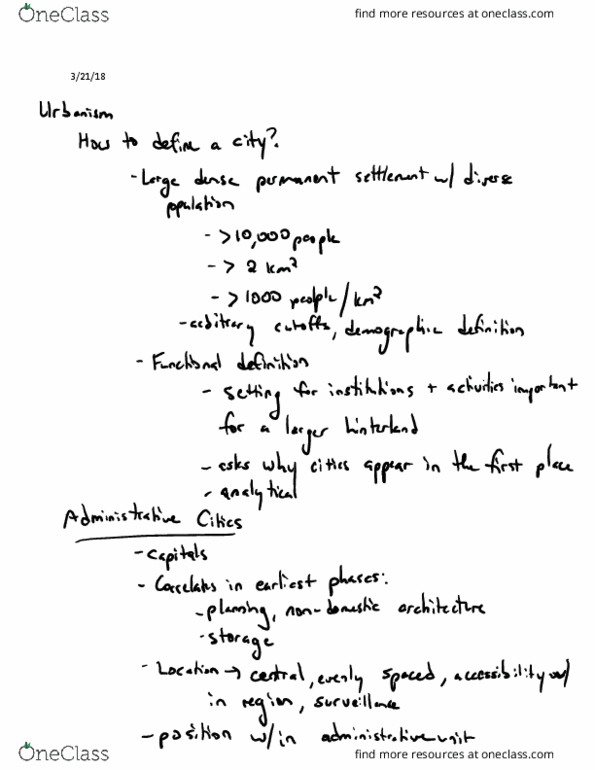 OneClass
find more resources at oneclass.com
3/21/18
Urbanism
How to define a city?
- Large dense permanent settlement w/ diverse
population
- >10,000 people
- > 2 km²
- > 1000 people/km²
- arbitrary cutoffs, demographic definition
- Functional definition
- setting for institutions + activities important
for a larger hinterland
- asks why cities appear in the first place
- analytical
Administrative Cities
- capitals
- Correlates in earliest phases:
- planning, non-domestic architecture
- storage
- Location → central, evenly spaced, accessibility w/
in region, surveillance
- position w/in administrative unit
OneClass
find more resources at oneclass.com